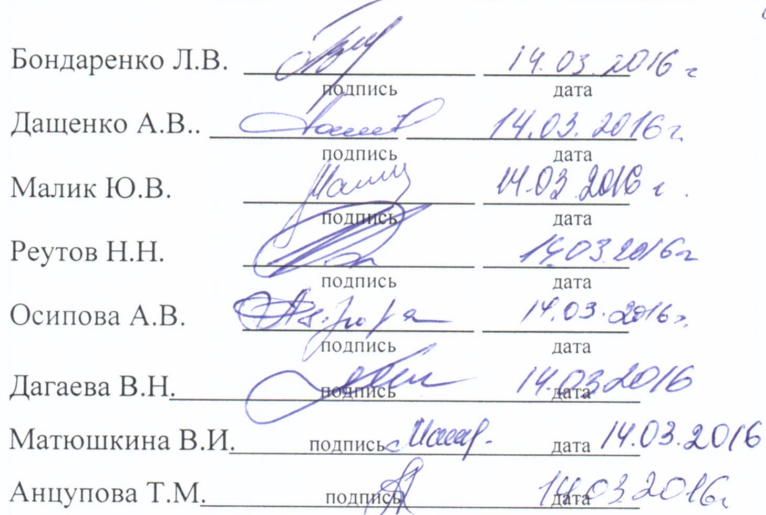 Бондаренко Л.В. 14.03.2016 г
подпись дата
Дащенко А.В.. 14.03.2016г.
подпись дата
Малик Ю.В. 14.03.2016 г.
подпись дата
Реутов Н.Н. 14.03.2016г
подпись дата
Осипова А.В. 14.03.2016г.
подпись дата
Дагаева В.Н. 14.03.2016
подпись дата
Матюшкина В.И. подпись дата 14.03.2016
Анцупова Т.М. подпись дата 14.03.2016г